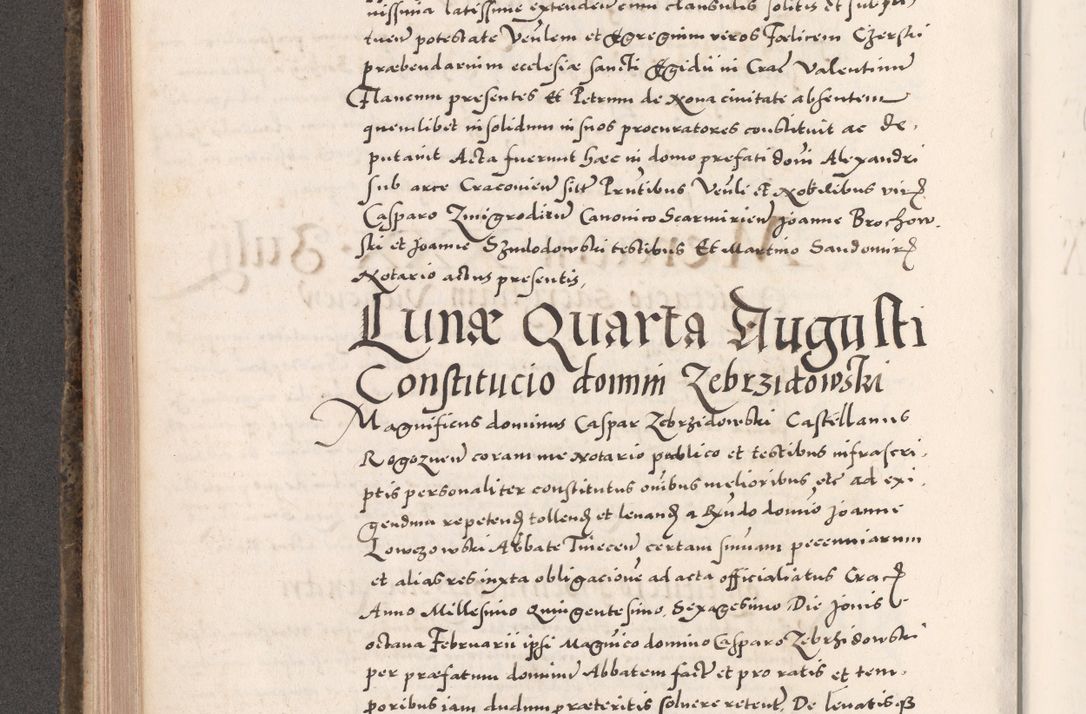 nissima latissime extendenem clausulis solitis et substi
tuen potestate Venlem et Egregium viros Fœlicem Czerski
præbendarium ecclesiæ sancti Egidii in Crac Valentinum
Flancum presentes Et Petrum de Nova civitate absentem
quemlibet insolidum in suos procuratores constituit ac de,
putavit Acta fuerunt hæc in domo prefati domi Alexandri
sub arce Cracovien sitt Prutibus Venli et Nobilibus vir
Casparo Zmigrodiun Canonico Scarmirien Joanne Brochow,
ski et Joanne Szmlodowski testibus Et Martino Sandomir
Notario actus presentis,
Lunæ Quarta Augusti
Constitucio domini Zebrzidowski
Magnificus dominus Caspar Zebrzidowski Castellanus
Rogoznen coram me Notario publico et testibus infrascri,
ptis personaliter constitutus omibus melioribus, etc ad exi,
gendum repetend tollend et levand a Rndo domio Joanne
Lowczowski Abbate Tinecen certam smam pecuniarum
et alias res iuxta obligacione ad acta officialiatus Crac
Anno Millesimo Quingentesimo, Sexagesimo, Die Jovis
octava Februarii ipsi Magnico domino Casparo Zebrzidowski
per præfatum dominum Abbatem fact et pro ratis et tem,
poribus iam dudum præteritis solvere retent, De levatisq3